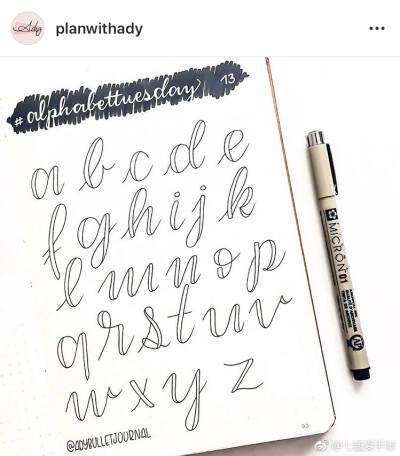 Ady
planwithady
#alphabettuesday 13
a b c d e
f g h i j k
l m n o p
q r s t u v
w x y z
@ADYBULLETJOURNAL
MICRON 01